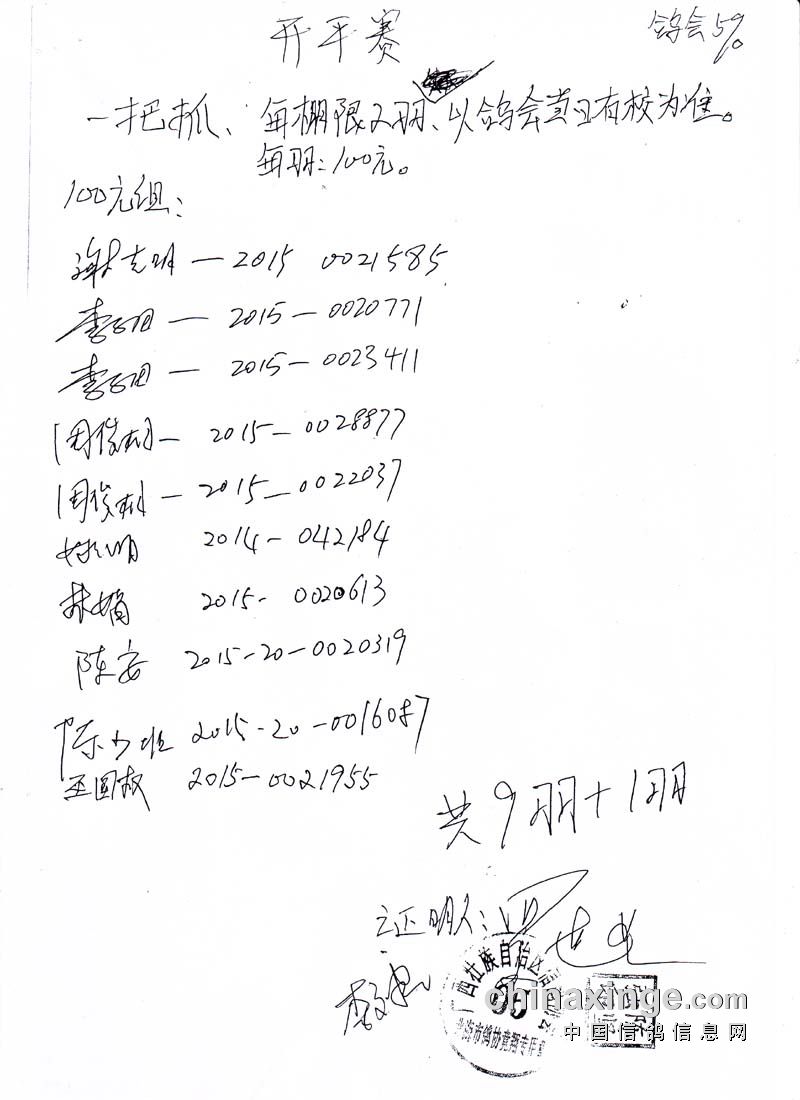 开平赛
鸽会5%
一把抓、每棚限2羽、以鸽会当日有校为准。
每羽:100元。
100元组:
谢志明—2015 0021585
李 — 2015—0020771
李 — 2015—0023411
周俊 — 2015—0028877
周俊 — 2015—0022037
2014—042184
林娟 2015- 0020613
陈安 2015-20-0020319
陈少 2015-20-0016087
2015-0021955
共9羽+1羽
证明人:
广西壮族自治区信鸽
北海市鸽协竞翔专用章
chinaxinge.com
中国信鸽信息网